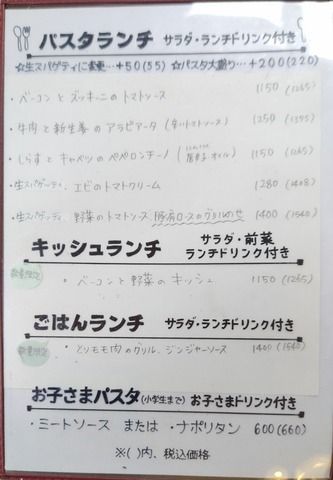 パスタランチ サラダ・ランチドリンク付き
☆生スパゲティに変更…+50(55) ☆パスタ大盛り…+200(220)
・ベーコンとズッキーニのトマトソース 1150 (1265)
・牛肉と新生姜のアラビアータ (辛いトマトソース) 1250 (1375)
・しらすとキャベツのペペロンチーノ (唐辛子オイル) 1150 (1265)
・生スパゲッティ、エビのトマトクリーム 1280 (1408)
・生スパゲッティ、野菜のトマトソース、豚肩ロースのグリルのせ 1400 (1540)
キッシュランチ サラダ・前菜
ランチドリンク付き
数量限定
・ベーコンと野菜のキッシュ 1150 (1265)
ごはんランチ サラダ・ランチドリンク付き
数量限定
・とりモモ肉のグリル、ジンジャーソース 1400 (1540)
お子さまパスタ(小学生まで) お子さまドリンク付き
・ミートソース または ・ナポリタン 600(660)
※( )内、税込価格